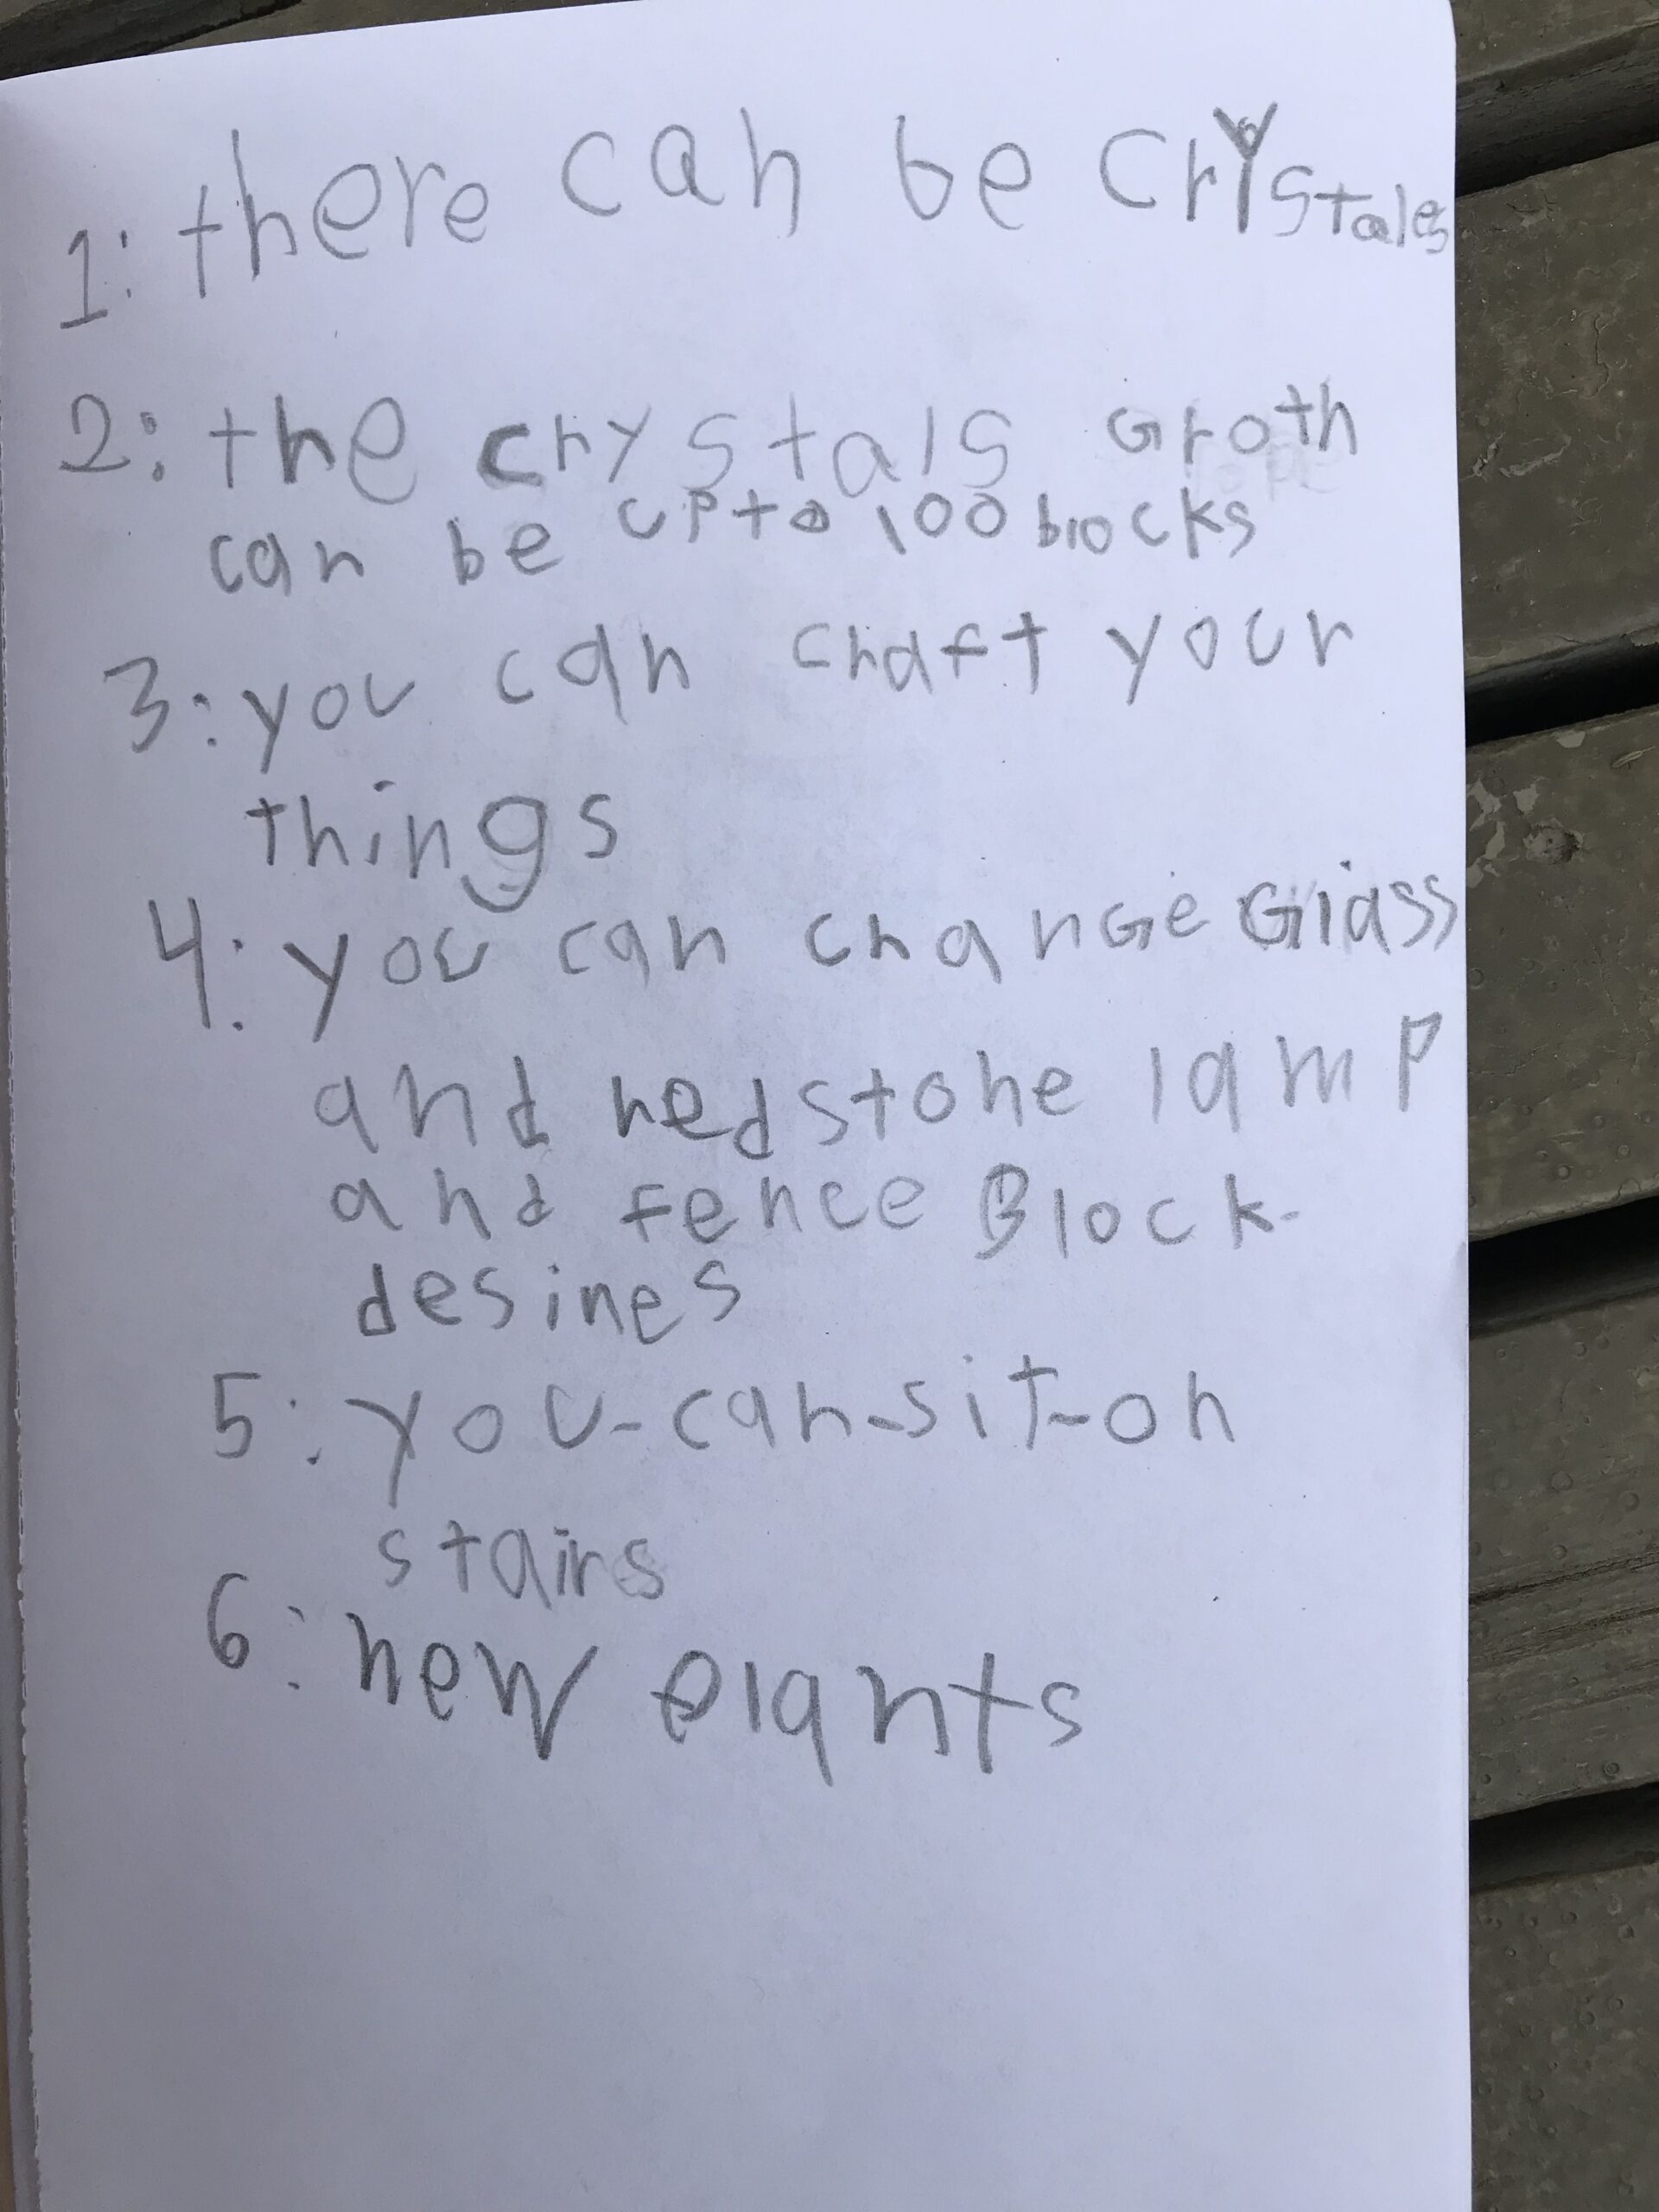 1: there can be crystales
2: the crystals Groth
can be up to 100 blocks
3: you can craft your
things
4: you can chanGe Glass
and redstone lamp
and fence Block-
desines
5: you-can-sit-on
stairs
6: new plants